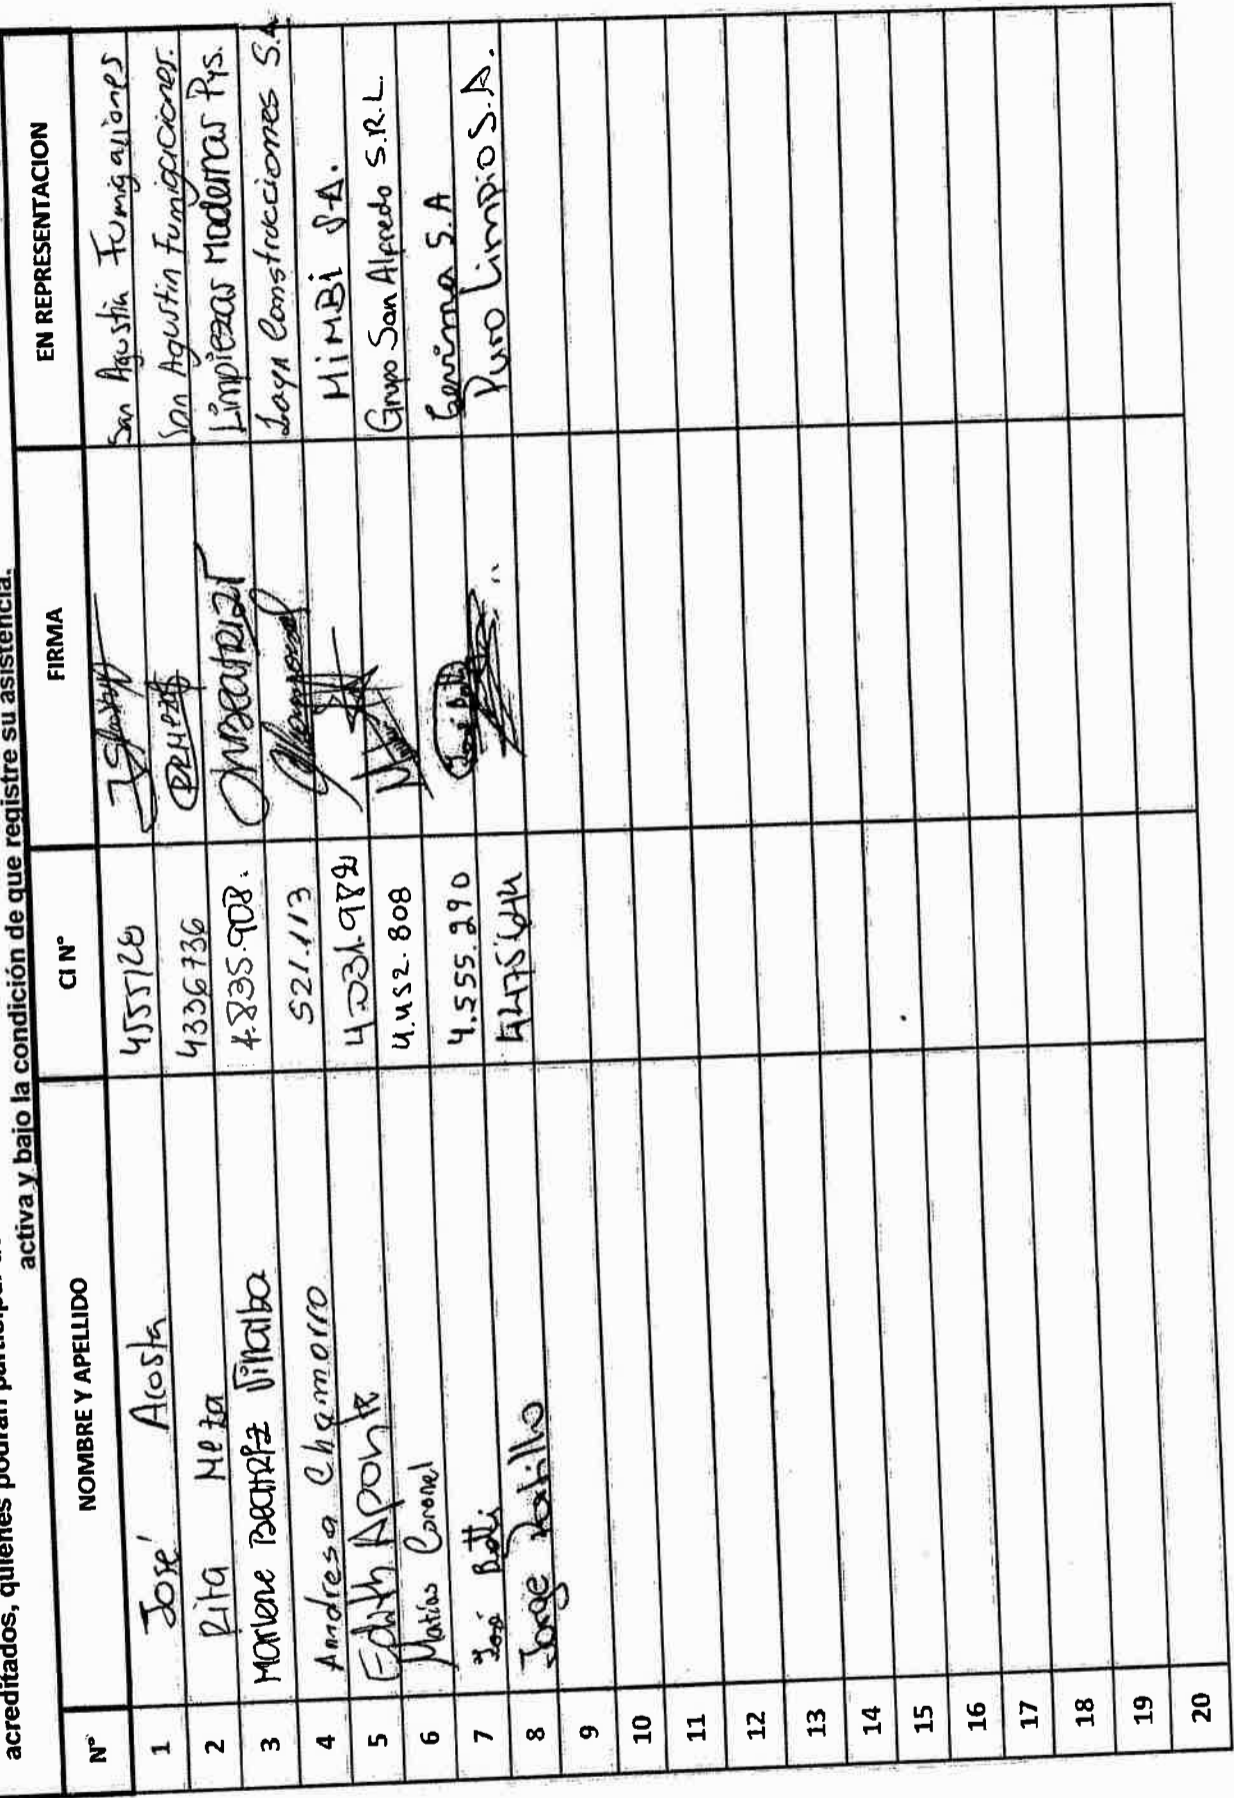 acreditados, quienes podrán participar de
activa y bajo la condición de que registre su asistencia.
N° NOMBRE Y APELLIDO CI N° FIRMA EN REPRESENTACION
1 José Acosta 4555128 San Agustin Fumigaciones
2 Rita Meza 4336736 RMeza San Agustin Fumigaciones.
3 Marlene Beatriz Villalba 4.835.908. San Limpiezas Modernas Pys.
4 Andresa Chamorro 521.113 Construcciones S.A
5 Edith Aponte 4.031.982 MiMBi S.A.
6 Matías Coronel 4.452.808 Grupo San Alfredo S.R.L.
7 José Botti 4.555.290 José Botti S.A
8 Jorge Patillo Puro Limpio S.A.
9
10
11
12
13
14
15
16
17
18
19
20